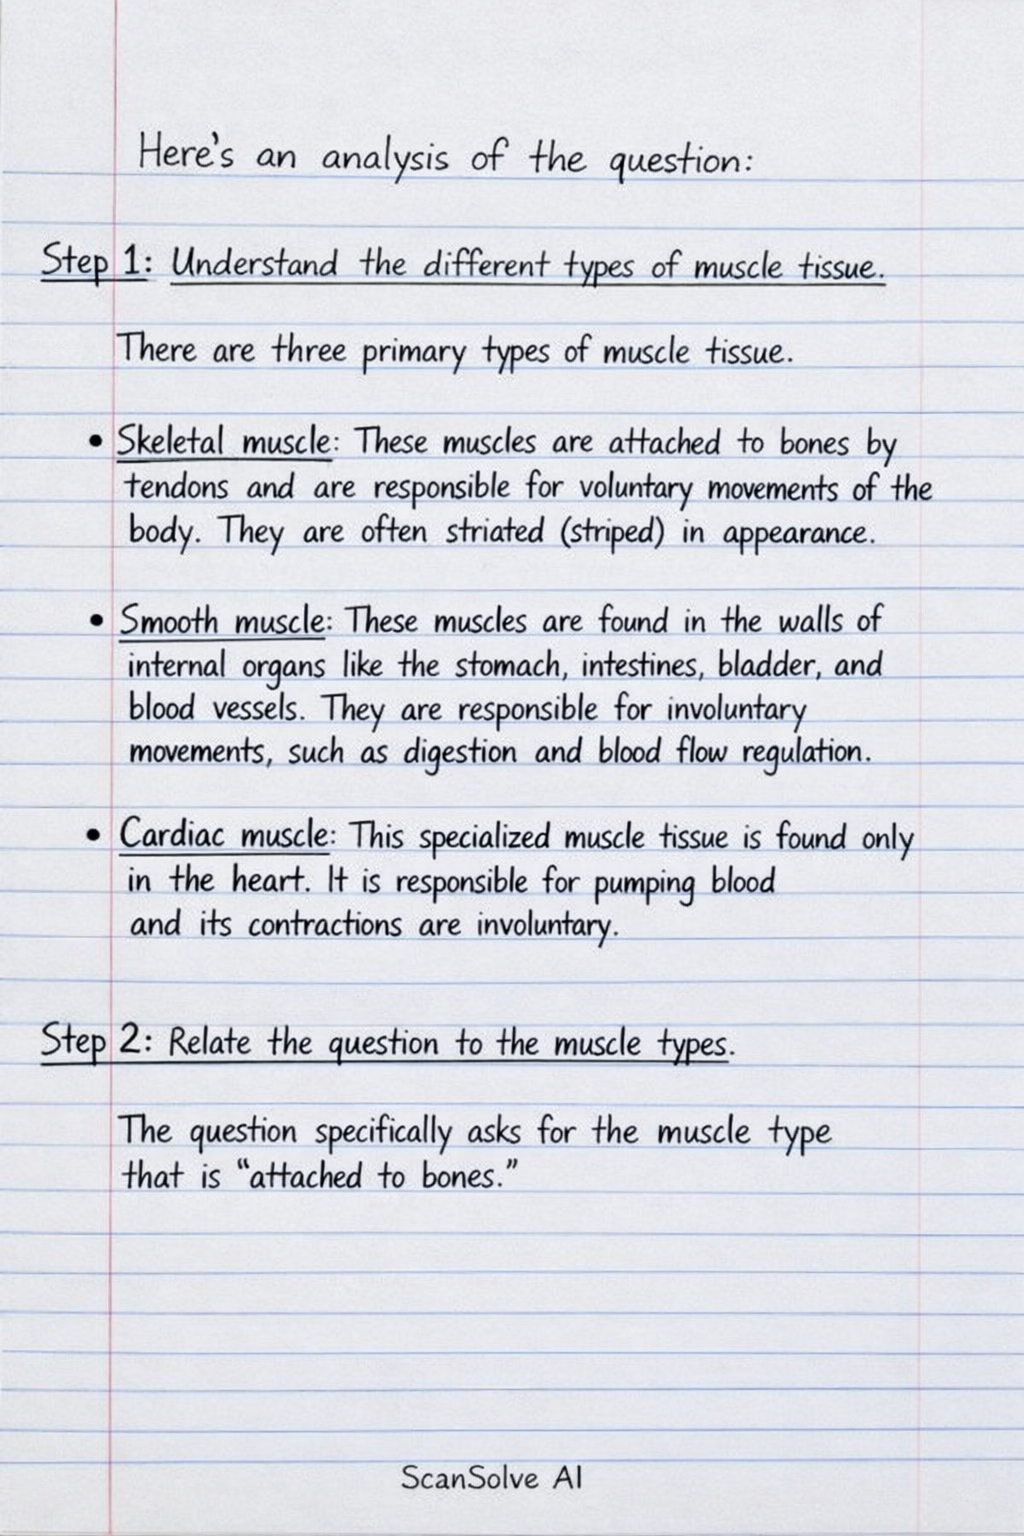 Here's an analysis of the question:
Step 1: Understand the different types of muscle tissue.
There are three primary types of muscle tissue.
• Skeletal muscle: These muscles are attached to bones by
tendons and are responsible for voluntary movements of the
body. They are often striated (striped) in appearance.
• Smooth muscle: These muscles are found in the walls of
internal organs like the stomach, intestines, bladder, and
blood vessels. They are responsible for involuntary
movements, such as digestion and blood flow regulation.
• Cardiac muscle: This specialized muscle tissue is found only
in the heart. It is responsible for pumping blood
and its contractions are involuntary.
Step 2: Relate the question to the muscle types.
The question specifically asks for the muscle type
that is “attached to bones.”
ScanSolve AI